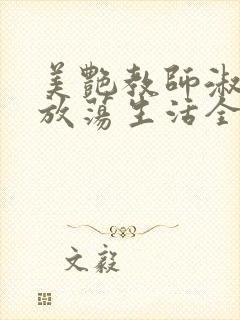 美艷教師淑
放蕩生活全
文毅